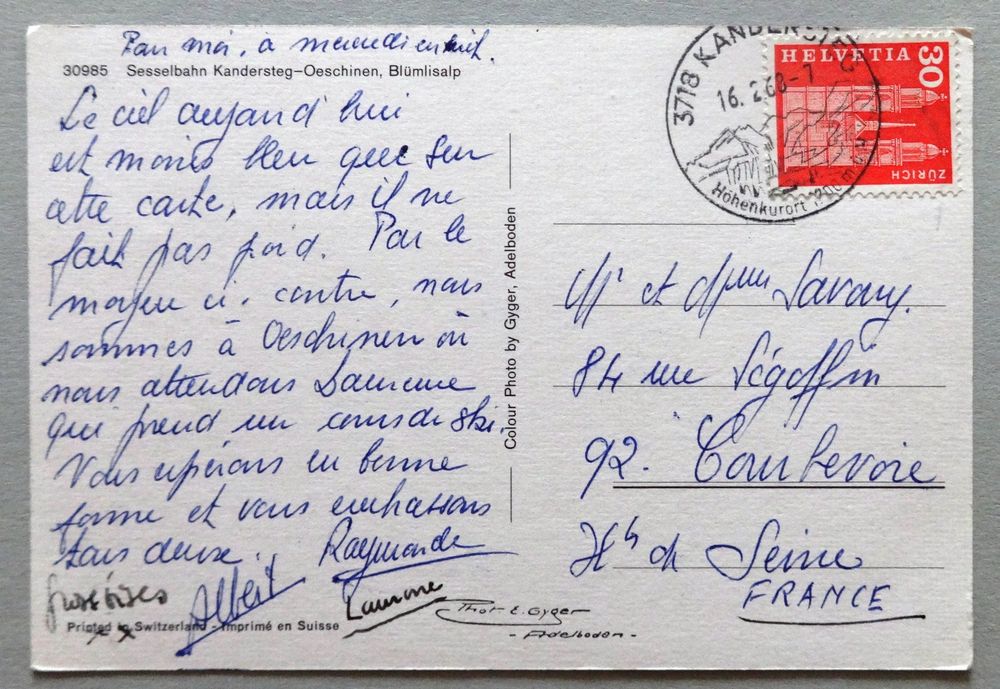 Pour moi, à
30985 Sesselbahn Kandersteg–Oeschinen, Blümlisalp
Le ciel aujourd'hui
est moins bleu que sur
cette carte, mais il ne
fait pas froid. Par le
moyen ci-contre, nous
sommes à Oeschinen où
nous attendons Laurence
qui prend un cours de ski.
Vous espérons en bonne
forme et vous embrassons
tous deux. Raymonde
grosses bises Albert Laurence
Printed in Switzerland - Imprimé en Suisse
Phot E. Gyger
- Adelboden -
Colour Photo by Gyger, Adelboden
3718 KANDERSTEG
16. 2.68-7
Höhenkurort 1200m
HELVETIA
30
ZÜRICH
Mr et Mme Savary
84 rue Ségoffin
92. Courbevoie
Hts de Seine
FRANCE